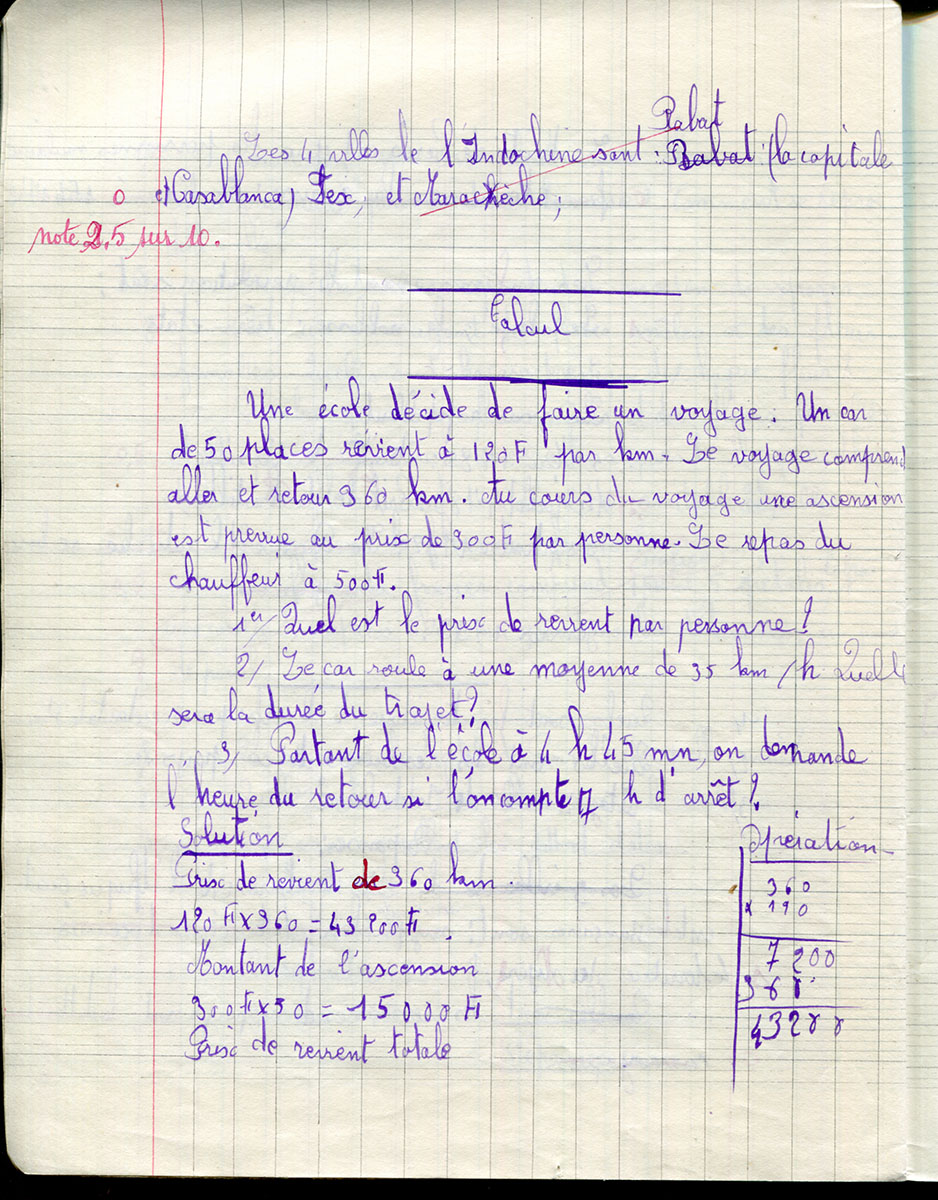 Rabat
Les 4 villes de l'Indochine sont : Rabat (la capitale
0 et Casablanca) Fex, et Marackèche ;
note 2,5 sur 10.
Calcul
Une école décide de faire un voyage. Un car
de 50 places revient à 120F par km. Le voyage comprend
aller et retour 360 km. Au cours du voyage une ascension
est prevue au prix de 300F par personne. Le repas du
chauffeur à 500F.
1er/ Quel est le prix de revient par personne ?
2/ Le car roule à une moyenne de 35 km/h Quelle
sera la durée du trajet ?
3/ Partant de l'école à 4 h 45 mn, on demande
l'heure du retour si l'on compte 7 h d'arrêt ?
Solution
Opération
Prix de revient de 360 km.
360
120F x 360 = 43 200F
x 120
Montant de l'ascension
7 200
300F x 50 = 15 000 F
36
43200
Prix de revient totale